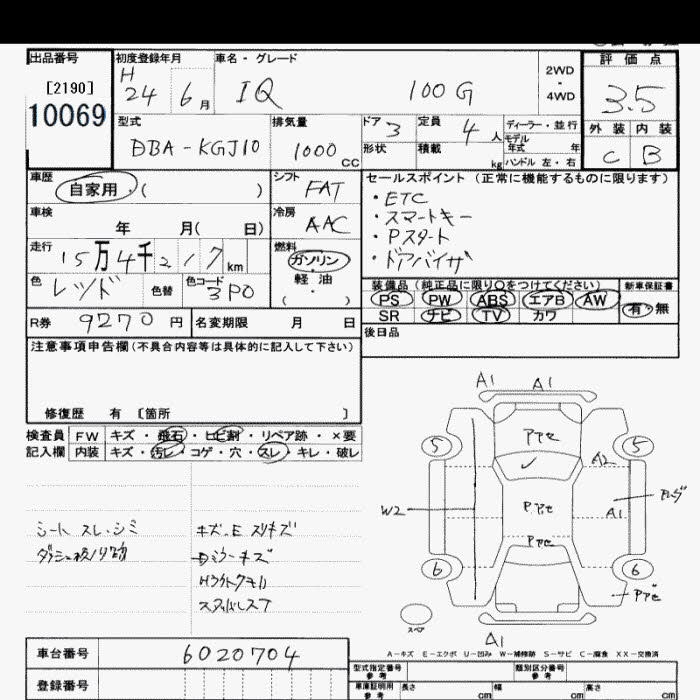 出品番号 初度登録年月 車名・グレード 2WD・4WD 評価点
[2190] H 24 6月 IQ 100G 3.5
10069
型式 排気量 ドア 3 定員 4人 ディーラー・並行 外装 内装
DBA-KGJ10 1000CC 形状 積載 kg モデル年式 年 C B
ハンドル 左・右
車歴 シフト セールスポイント(正常に機能するものに限ります)
自家用・( ) FAT ・ETC
車検 冷房 ・スマートキー
年 月( 日) AAC ・Pスタート
走行 燃料 ・ドアバイザ
15万4千217km ガソリン・軽油・( )
色 レッド 色替 色コード 3P0 装備品(純正品に限り○をつけてください) 新車保証書
PS PW ABS エアB AW 有・無
R券 9270円 名変期限 月 日 SR ナビ TV カワ
注意事項申告欄(不具合内容等は具体的に記入して下さい) 後日品
修復歴 有 [箇所 ]
検査員 FW キズ・飛石・ヒビ割・リペア跡・×要
記入欄 内装 キズ・汚レ・コゲ・穴・スレ・キレ・破レ
A1 A1
5 5
A2
W2 A1
6 6
スペア
A1
シート スレ・シミ キズ.E スリキズ
A-キズ E-エクボ U-凹み W-補修跡 S-サビ C-腐食 XX-交換済
車台番号 6020704 型式指定番号 参考 類別区分番号 参考
登録番号 車庫証明用 参考 長さ cm 幅 cm 高さ cm